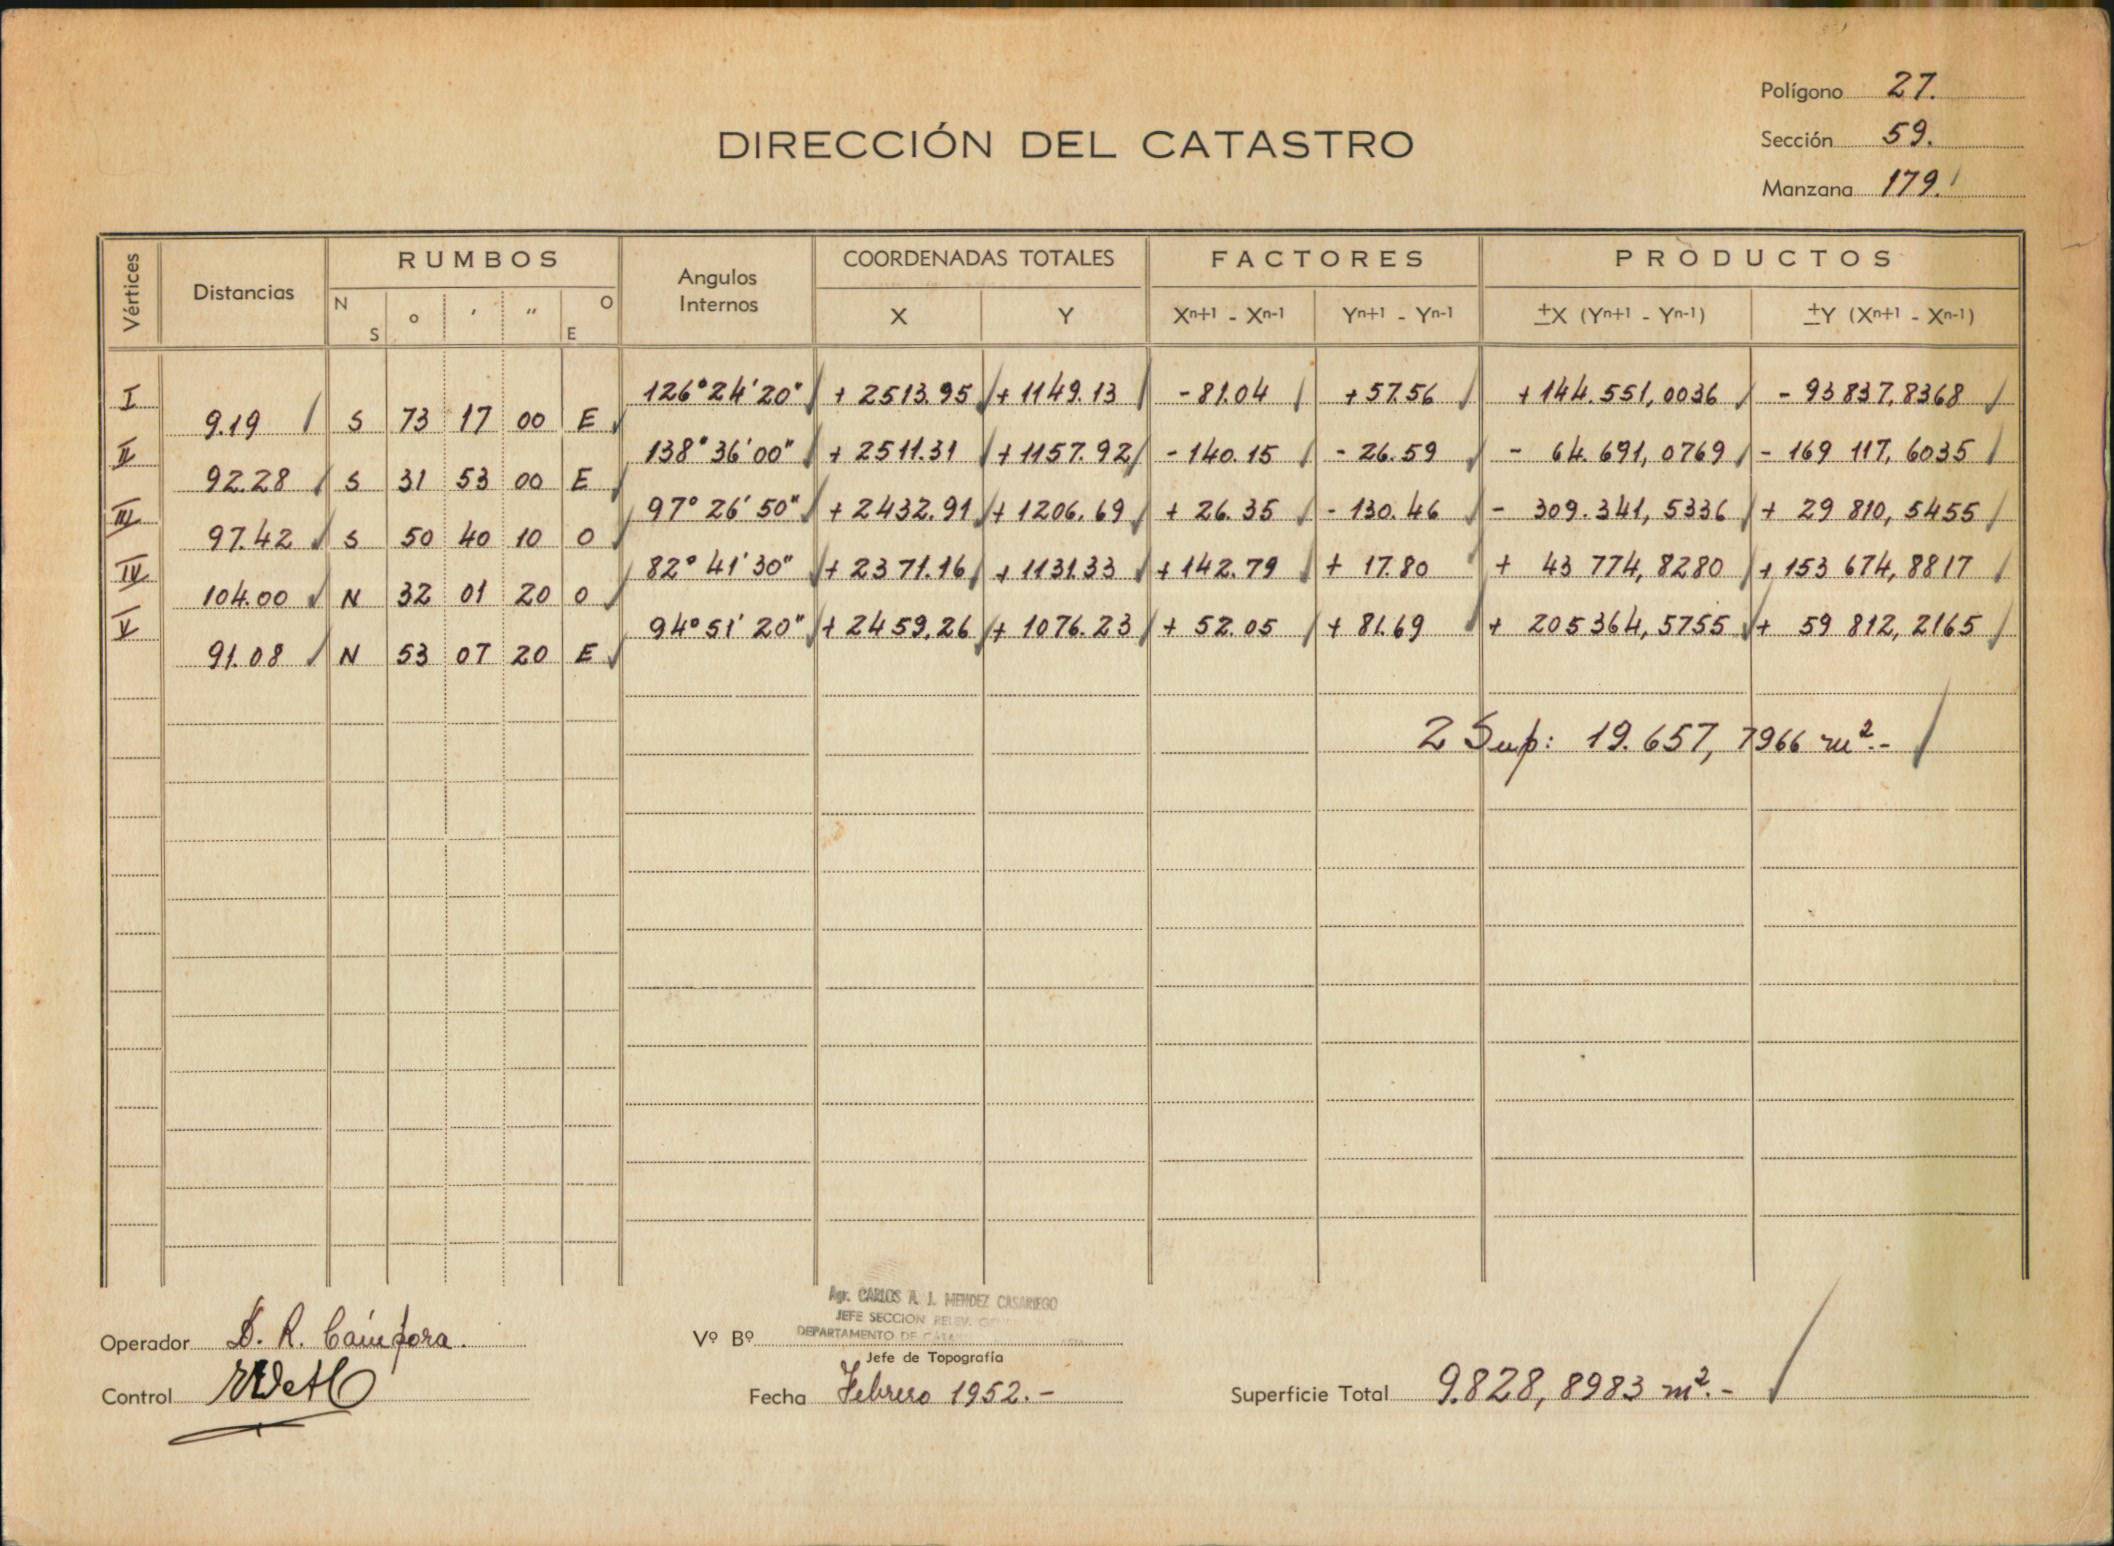 Polígono 27.
DIRECCIÓN DEL CATASTRO
Sección 59.
Manzana 179.
Vértices Distancias RUMBOS Angulos Internos COORDENADAS TOTALES FACTORES PRODUCTOS
N S ° ′ ″ O E X Y Xn+1 - Xn-1 Yn+1 - Yn-1 ±X (Yn+1 - Yn-1) ±Y (Xn+1 - Xn-1)
I 126°24'20" + 2513.95 + 1149.13 - 81.04 + 57.56 + 144.551,0036 - 93 837,8368
9.19 S 73 17 00 E
II 138°36'00" + 2511.31 + 1157.92 - 140.15 - 26.59 - 64.691,0769 - 169 117,6035
92.28 S 31 53 00 E
III 97°26'50" + 2432.91 + 1206.69 + 26.35 - 130.46 - 309.341,5336 + 29 810,5455
97.42 S 50 40 10 O
IV 82°41'30" + 2371.16 + 1131.33 + 142.79 + 17.80 + 43 774,8280 + 153 674,8817
104.00 N 32 01 20 O
V 94°51'20" + 2459.26 + 1076.23 + 52.05 + 81.69 + 205364,5755 + 59 812,2165
91.08 N 53 07 20 E
2 Sup: 19.657,7966 m².-
Agr. CARLOS A. J. MENDEZ CASARIEGO
JEFE SECCION RELEV.
DEPARTAMENTO DE
Operador D. R. Cámpora.
Vº Bº
Jefe de Topografía
Control
Fecha Febrero 1952.-
Superficie Total 9.828,8983 m².-